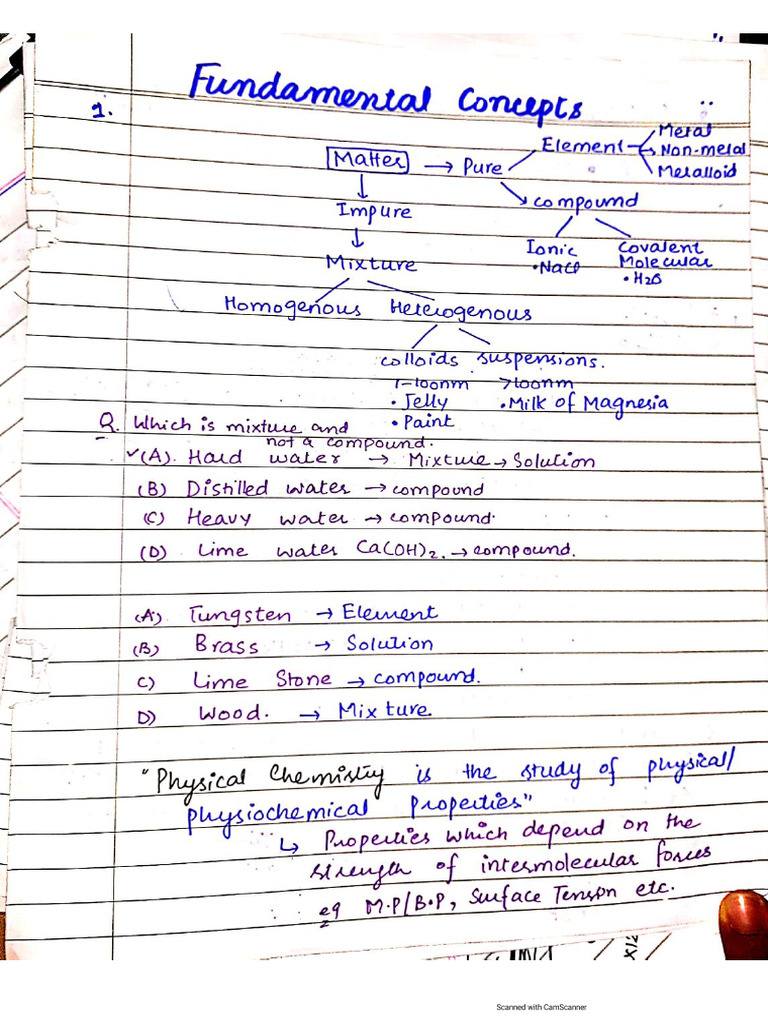 Fundamental Concepts
1.
Matter → Pure
Element
Metal
Non-metal
Metalloid
compound
Impure
Ionic
• NaCl
Covalent
Molecular
• H2O
Mixture
Homogenous Heterogenous
colloids suspensions.
1-100nm >100nm
• Jelly • Milk of Magnesia
• Paint
Q. Which is mixture and
not a compound.
✓(A). Hard water → Mixture → Solution
(B) Distilled water → compound
(C) Heavy water → compound.
(D) Lime water Ca(OH)2. → compound.
(A) Tungsten → Element
(B) Brass → Solution
C) Lime Stone → compound.
D) Wood. → Mixture
"Physical Chemistry is the study of physical/
physiochemical Properties"
↳ Properties which depend on the
strength of intermolecular forces
eg M.P/B.P, Surface Tension etc.
Scanned with CamScanner